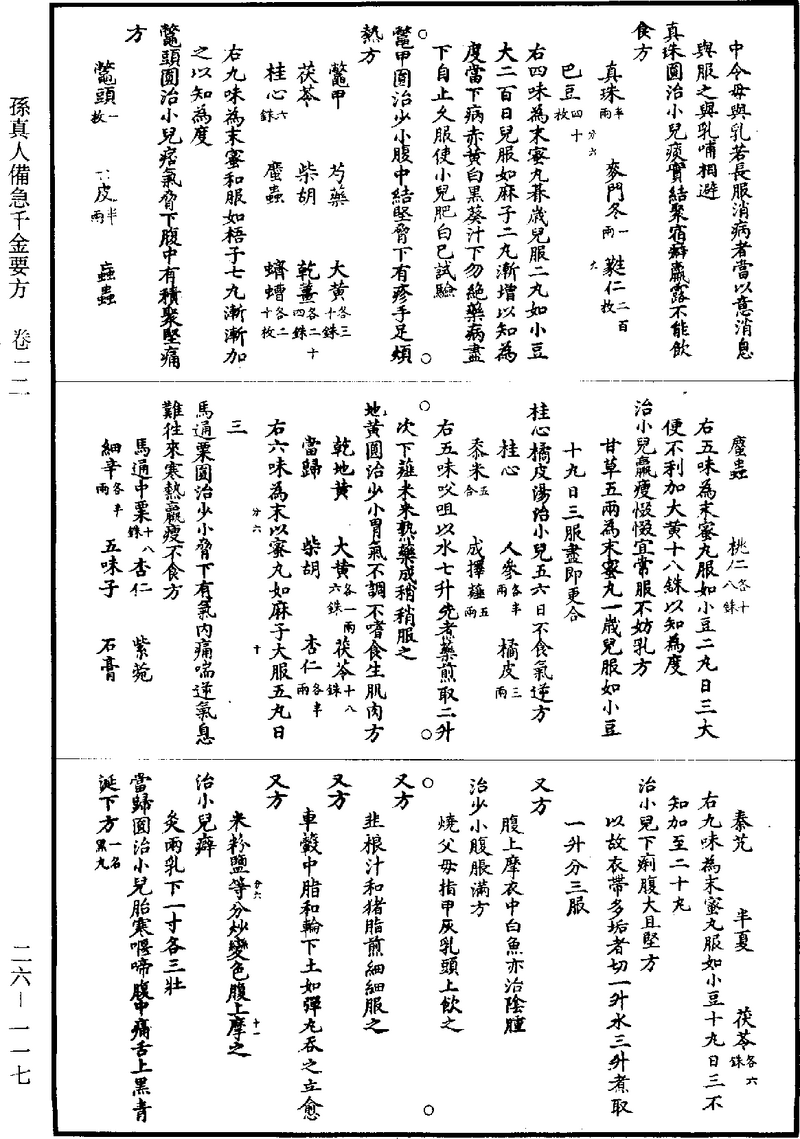 孫真人備急千金要方　卷一二
二六－一一七
中令母與乳若長服消病者當以意消息
與服之與乳哺相避
真珠圓治小兒痰實結聚宿癖羸露不能飲
食方
真珠半兩　麥門冬一兩　蕤仁二百枚
巴豆四十枚
右四味為末蜜丸朞歲兒服二丸如小豆
大二百日兒服如麻子二丸漸增以知為
度當下病赤黃白黑葵汁下勿絕藥病盡
下自止久服使小兒肥白已試驗
鱉甲圓治少小腹中結堅脅下有疹手足煩
熱方
鱉甲　芍藥　大黃各三十銖
茯苓　柴胡　乾薑各二十四銖
桂心六銖　䗪蟲　蠐螬各二十枚
右九味為末蜜和服如梧子七丸漸漸加
之以知為度
鱉頭圓治小兒痞氣脅下腹中有積聚堅痛
方
鱉頭一枚　皮半兩　蟲
䗪蟲　桃仁各十八銖
右五味為末蜜丸服如小豆二丸日三大
便不利加大黃十八銖以知為度
治小兒羸瘦惙惙宜常服不妨乳方
甘草五兩為末蜜丸一歲兒服如小豆
十丸日三服盡即更合
桂心橘皮湯治小兒五六日不食氣逆方
桂心　人參各半兩　橘皮三兩
黍米五合　成擇薤五兩
右五味㕮咀以水七升先煮藥煎取二升
次下薤米米熟藥成稍稍服之
地黃圓治少小胃氣不調不嗜食生肌肉方
乾地黃　大黃各一兩六銖　茯苓十八銖
當歸　柴胡　杏仁各半兩
右六味為末以蜜丸如麻子大服五丸日
三
馬通粟圓治少小脅下有氣內痛喘逆氣息
難往來寒熱羸瘦不食方
馬通中粟十八銖　杏仁　紫菀
細辛各半兩　五味子　石膏
秦艽　半夏　茯苓各六銖
右九味為末蜜丸服如小豆十丸日三不
知加至二十丸
治小兒下痢腹大且堅方
以故衣帶多垢者切一升水三升煮取
一升分三服
又方
腹上摩衣中白魚亦治陰腫
治少小腹脹滿方
燒父母指甲灰乳頭上飲之
又方
韭根汁和猪脂煎細細服之
又方
車轂中脂和輪下土如彈丸吞之立愈
又方
米粉鹽等分炒變色腹上摩之
治小兒癖
灸兩乳下一寸各三壯
當歸圓治小兒胎寒喔啼腹中痛舌上黑青
涎下方一名黑丸